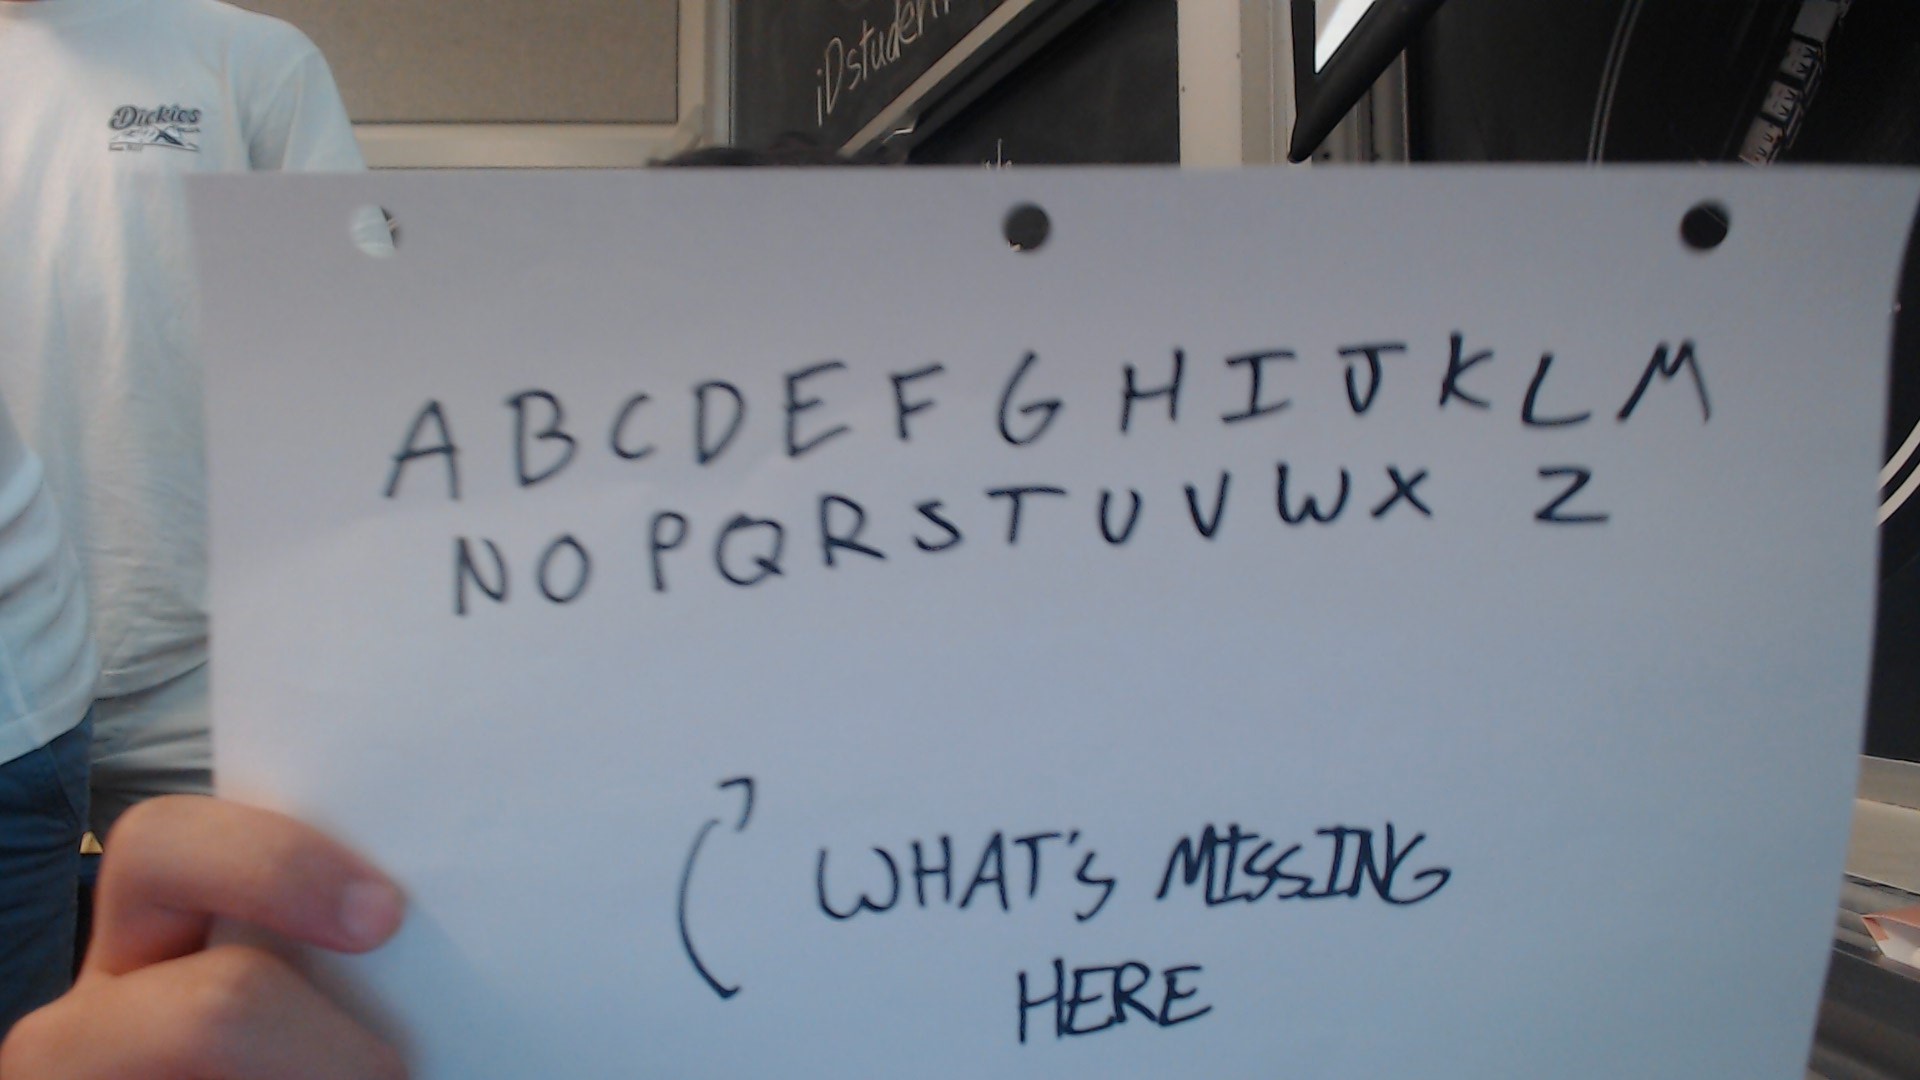 Dickies
iDstudent
A B C D E F G H I J K L M
N O P Q R S T U V W X Z
WHAT'S MISSING
HERE